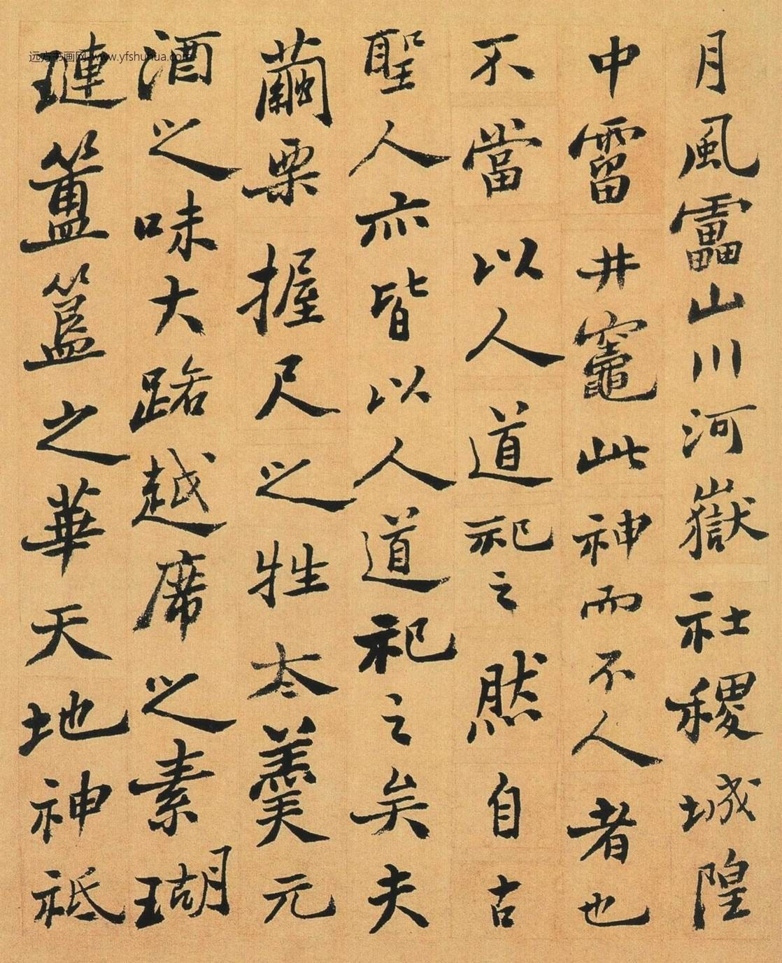 月風靁山川河嶽社稷城隍
中霤井竈此神而不人者也
不當以人道祀之然自古
聖人亦皆以人道祀之矣夫
繭栗握尺之牲太羹元
酒之味大路越席之素瑚
璉簠簋之華天地神祗
www.yfshuhua.com